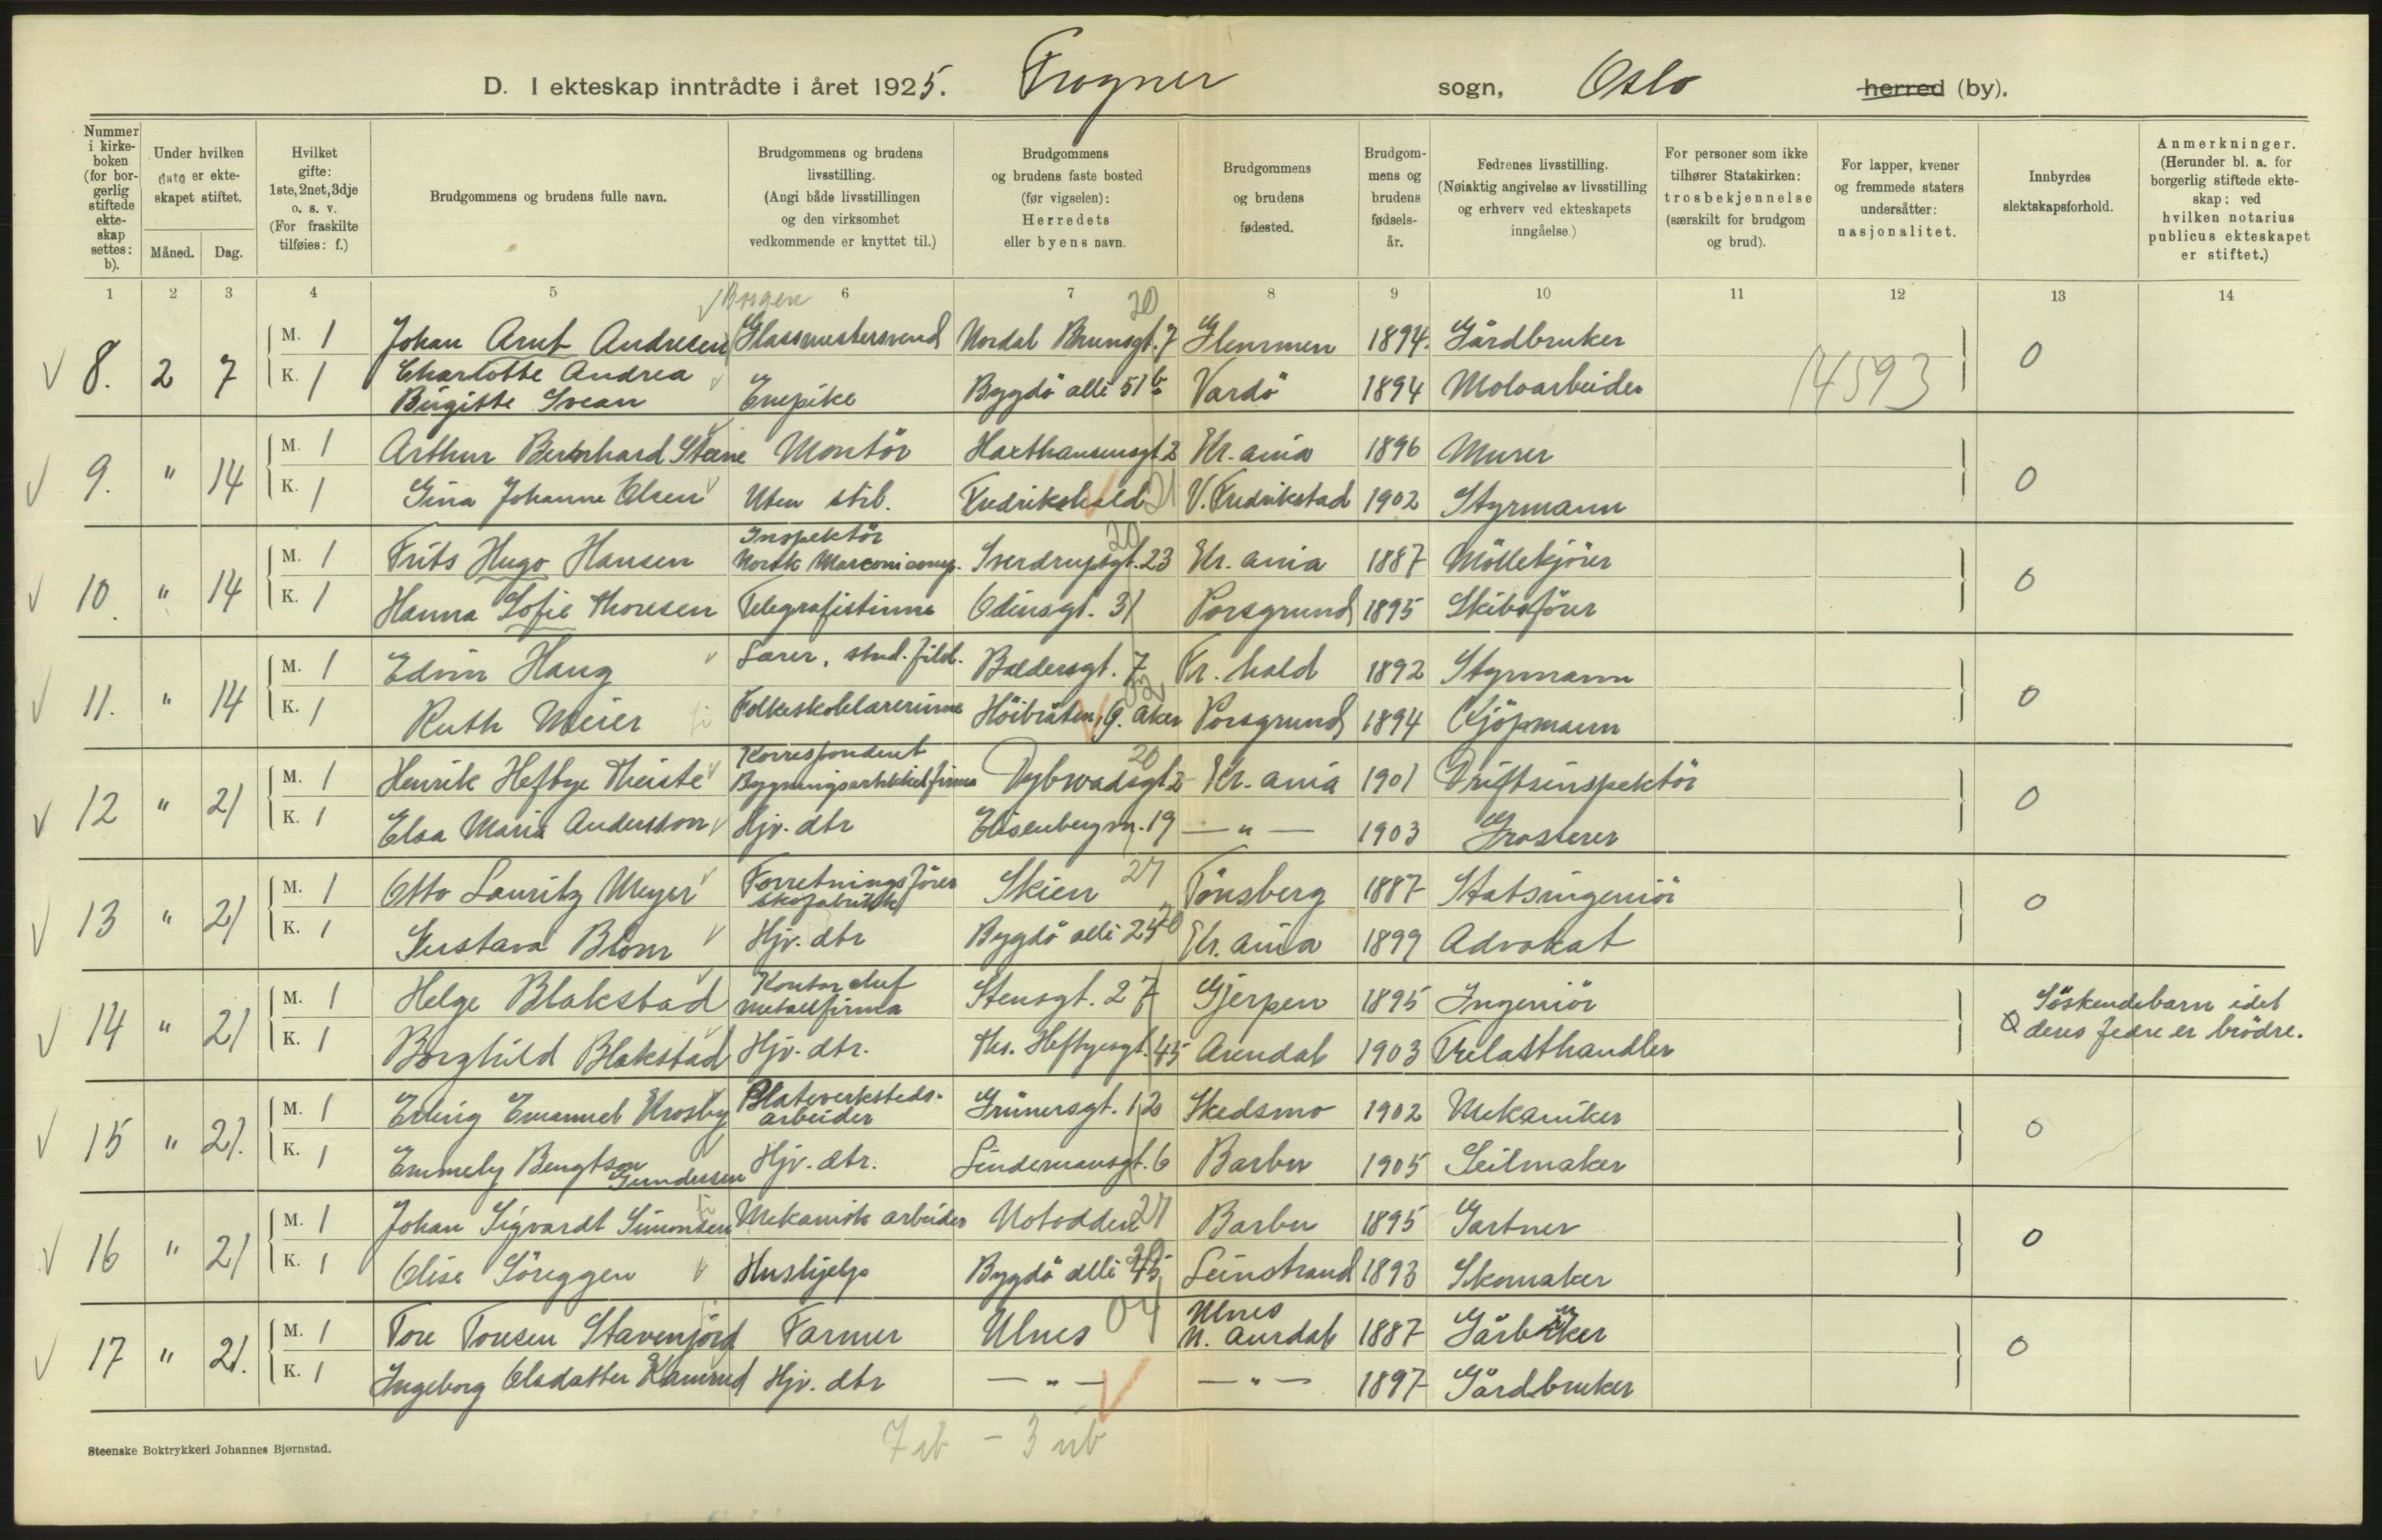 D. I ekteskap inntrådte i året 1925. Frogner sogn, Oslo herred (by).
Nummer i kirkeboken (for borgerlig stiftede ekteskap settes: b).
Under hvilken dato er ekteskapet stiftet.
Måned. Dag.
Hvilket gifte: 1ste, 2net, 3dje o. s. v. (For fraskilte tilføies: f.)
Brudgommens og brudens fulle navn.
Brudgommens og brudens livsstilling. (Angi både livsstillingen og den virksomhet vedkommende er knyttet til.)
Brudgommens og brudens faste bosted (før vigselen): Herredets eller byens navn.
Brudgommens og brudens fødested.
Brudgommens og brudens fødselsår.
Fedrenes livsstilling. (Nøiaktig angivelse av livsstilling og erhverv ved ekteskapets inngåelse.)
For personer som ikke tilhører Statskirken: trosbekjennelse (særskilt for brudgom og brud).
For lapper, kvener og fremmede staters undersåtter: nasjonalitet.
Innbyrdes slektskapsforhold.
Anmerkninger. (Herunder bl. a. for borgerlig stiftede ekteskap: ved hvilken notarius publicus ekteskapet er stiftet.)
1 2 3 4 5 6 7 8 9 10 11 12 13 14
Borgen 20
8. 2 7 M. 1 Johan Arnt Andresen Glassmestersvend Nordal Brunsgt. 7 Glemmen 1894. Gårdbruker 0
K. 1 Charlotte Andrea Birgitte Svean Enepike Bygdö allé 51 b Vardö 1894 Moloarbeider 14593
9. " 14 M. 1 Arthur Bernhard Steene Montör Haxthausensgt 2 Kr.ania 1896 Murer 0
K. 1 Gina Johanne Olsen Uten stil. Fredrikshald 21 V. Fredrikstad 1902 Styrmann
10. " 14 M. 1 Frits Hugo Hansen Inspektör Norsk Marconicomp. Sverdrupsgt. 23 20 Kr.ania 1887 Möllekjörer 0
K. 1 Hanna Sofie Thoresen Telegrafistinne Odinsgt. 31 Porsgrund 1895 Skibsförer
11. " 14 M. 1 Edvin Haug Lærer, stud. filol. Baldersgt. 7 Fr. hald 1892 Styrmann 0
K. 1 Ruth Meier Folkeskolelærerinne Höibråten, Ø. Aker 02 Porsgrund 1894 Kjöpmann
12 " 21 M. 1 Henrik Heftye Theiste Korrespondent Bygningsartikkelfirma Dybwadsgt 2 20 Kr.ania 1901 Driftsinspektör 0
K. 1 Elsa Maria Andersson Hjv. dtr Elisenbergvn. 19 — " — 1903 Grosserer
13 " 21 M. 1 Otto Lauritz Meyer Forretningsförer skofabrikk Skien 27 Tönsberg 1887 Statsingeniör 0
K. 1 Gustava Blom Hjv. dtr Bygdö allé 24 20 Kr.ania 1899 Advokat
14 " 21 M. 1 Helge Blakstad Kontorchef metallfirma Stensgt. 27 Gjerpen 1895 Ingeniör Söskendebarn idet
K. 1 Borghild Blakstad Hjv. dtr. Ths. Heftyesgt. 45 Arendal 1903 Trelasthandler deres fedre er brödre.
15 " 21. M. 1 Erling Emanuel Krosby Plateverksteds-arbeider Grünersgt. 12 Skedsmo 1902 Mekaniker 0
K. 1 Emmely Bengtson Gundersen Hjv. dtr. Lindemansgt. 6 Barbu 1905 Seilmaker
16 " 21 M. 1 Johan Sigvardt Simonsen Mekanisk arbeider Notodden 27 Barbu 1895 Gartner 0
K. 1 Olise Söreggen Hushjelp Bygdö allé 45 20 Leinstrand 1893 Skomaker
17 " 21. M. 1 Tore Toresen Stavenjord Farmer Ulnes 04 Ulnes N. Aurdal 1887 Gårbruker 0
K. 1 Ingeborg Olsdatter Kamrud Hjv. dtr — " — — " — 1897 Gårdbruker
7 ib – 3 ub
Steenske Boktrykkeri Johannes Bjørnstad.